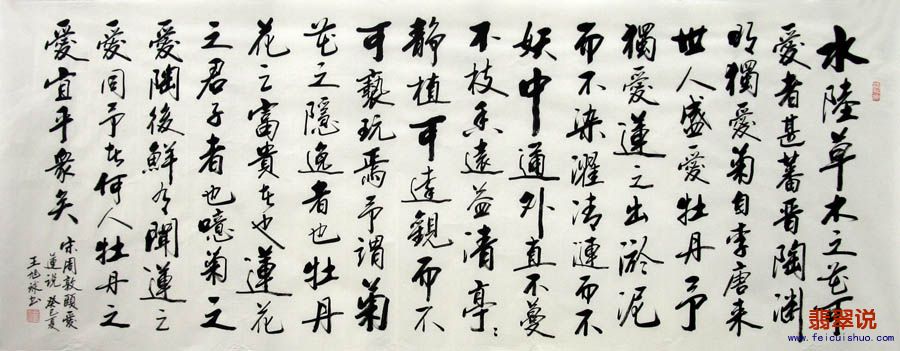 水陸草木之花可
愛者甚蕃晉陶渊
明獨愛菊自李唐来
世人盛愛牡丹予
獨愛蓮之出淤泥
而不染濯清漣而不
妖中通外直不蔓
不枝香遠益清亭〻
静植可遠觀而不
可褻玩焉予謂菊
花之隱逸者也牡丹
花之富貴者也蓮花
之君子者也噫菊之
愛陶後鮮有聞蓮之
愛同予者何人牡丹之
愛宜乎衆矣
宋周敦頤愛
蓮说 癸巳夏
王旭书
翡翠说
www.feicuishuo.com